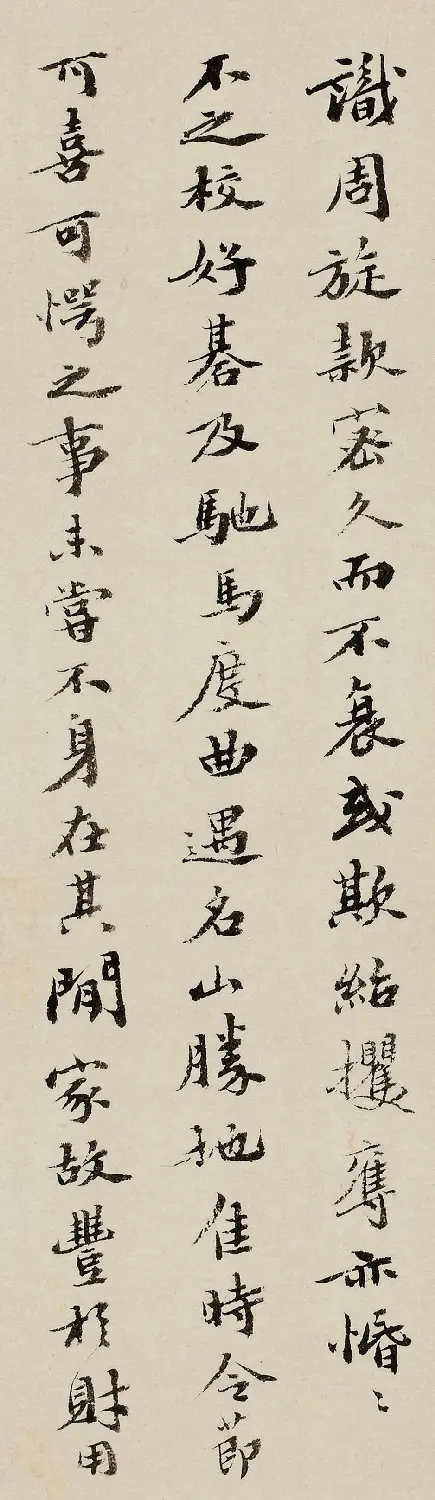 識周旋款密久而不衰或欺紿攫奪亦惛〻
不之校好碁及馳馬度曲遇名山勝地佳時令節
可喜可愕之事未嘗不身在其間家故豐於財用